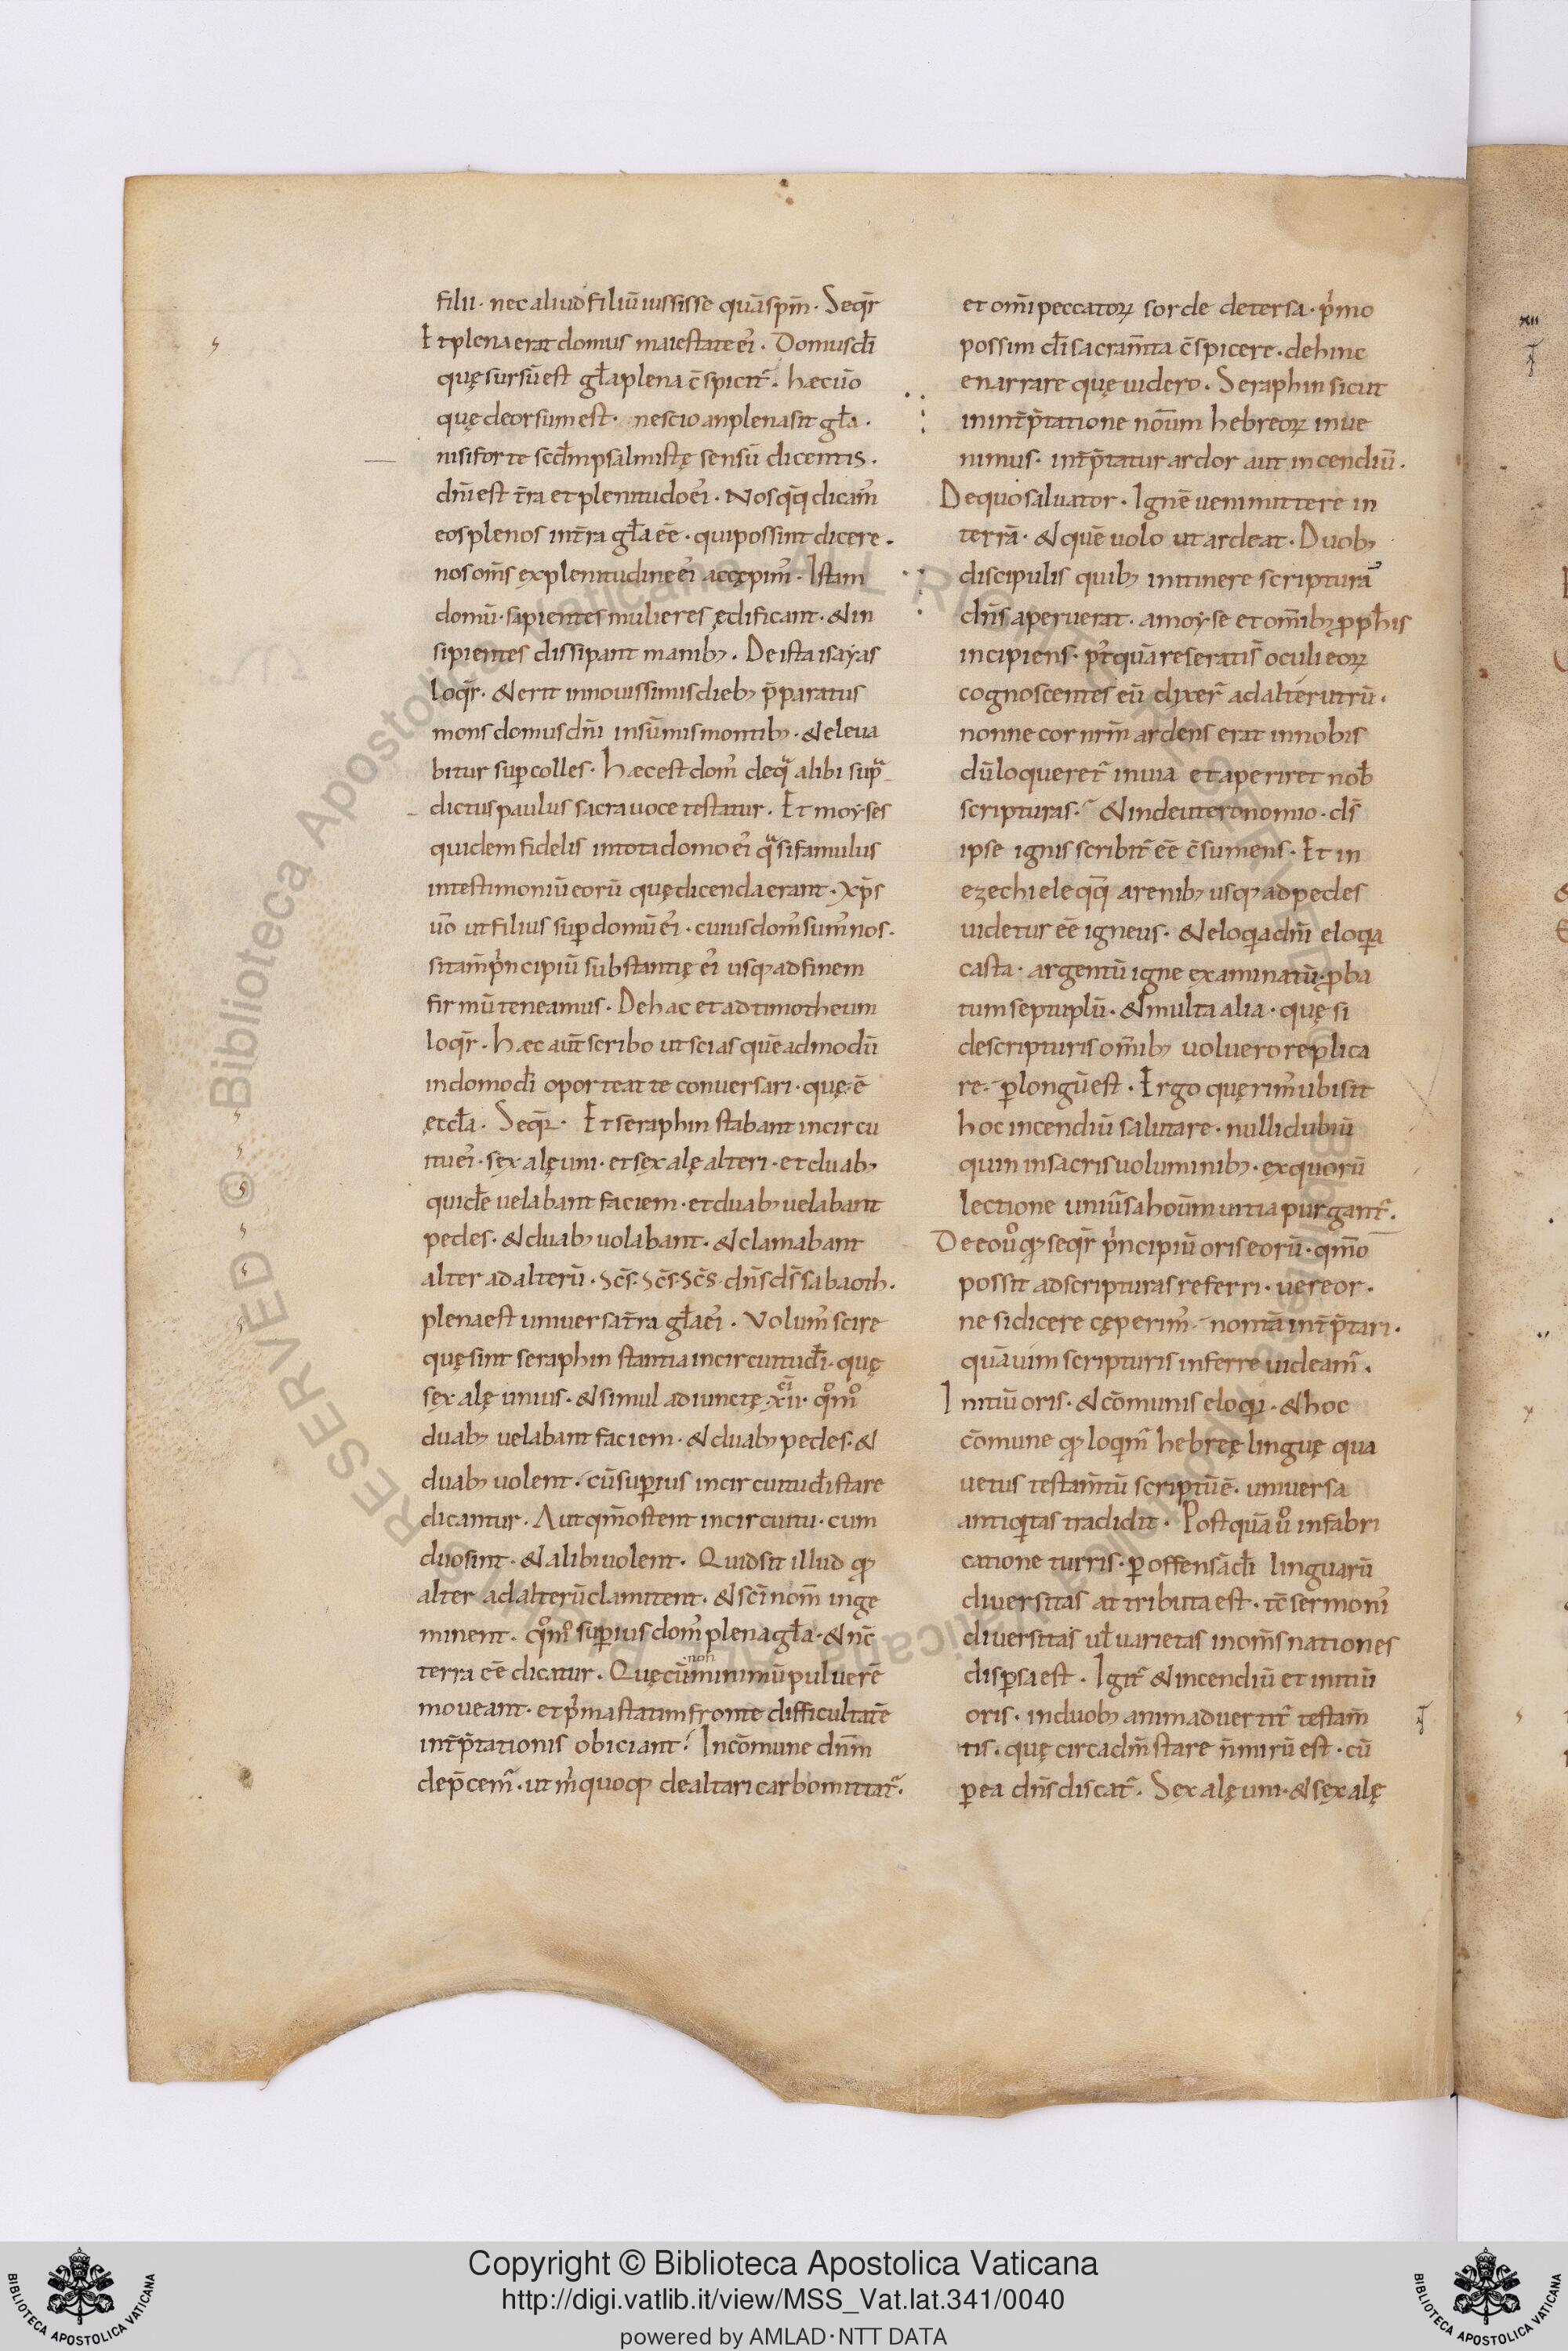 filii· nec aliud filiū iussisse quā spm̄· Seqr̄
Et plena erat domus maiestate ei᾽· Domus dī
quę sursū est gl̄a plena c̄spicit᾽· hæc ūo
quę deorsum est· nescio an plena sit gl̄a·
nisi forte scdm̄ psalmistę sensū dicentis·
dn̄i est t̄ra et plenitudo ei᾽· Nos qq̨ dicam᾽
eos plenos in t̄ra gl̄a ēe· qui possint dicere·
nos om̄s ex plenitudine ei᾽ accępim᾽· Istam
domū· sapientes mulieres ędificant· & in
sipientes dissipant manib;· De ista isayas
loqr̄· & erit in novissimis dieb; p̄paratus
mons domus dn̄i in sūmis montib;· & eleua
bitur sup colles· Hæc est dom᾽ de qᵃ alibi supᵃ
dictus paulus sacra uoce testatur· Et moyses
quidem fidelis in tota domo ei᾽ qᵃsi famulus
in testimoniū eorū quę dicenda erant· xp̄s
ūo ut filius sup domū ei᾽· cuius dom᾽ sum᾽ nos·
si tam̄ pⁱncipiū substantię ei᾽ usq; ad finem
firmū teneamus· De hac et ad timotheum
loqr̄· Hæc aūt scribo ut scias quēadmodū
in domo dī oporteat te conuersari· quę ē
ęccl̄a· Seqr̄· Et seraphin stabant in circu
itu ei᾽· sex alę uni· et sex alę alteri· et duab;
quidē uelabant faciem· et duab; uelabant
pedes· & duab; uolabant· & clamabant
alter ad alterū· Sc̄s· Sc̄s· Sc̄s· dn̄s ds̄ sabaoth·
plena est universa t̄ra gl̄a ei᾽· Volum᾽ scire
quę sint seraphin stantia in circuitu dī· quę
sex alę unius· & simul adiunctę xii· qᵒmᵒ
duab; uelabant faciem· & duab; pedes· &
duab; uolent· cū superius in circuitu dī stare
dicantur· Aut qm̄o stent in circuitu· cum
duo sint· & alibi uolent· Quid sit illud qd
alter ad alterū clamitent· & sc̄i nom̄ inge
minent· qᵒmᵒ superius dom᾽ plena gl̄a· & nc̄
terra ēe dicatur· Quę cū non minimū puluerē
moueant· et pⁱma statim fronte difficultatē
int̄p̄tationis obiciant· In cōmune dn̄m
dep̄cem᾽· ut mⁱ quoq; de altari carbo mittat᾽·
et om̄i peccatoꝝ sorde detersa· pⁱmo
possim dī sacram̄ta c̄spicere· dehinc
enarrare quę uidero· Seraphin sicut
in int̄p̄tatione nōum hebreoꝝ inue
nimus· int̄p̄tatur ardor aut incendiū·
De quo saluator· Ignē ueni mittere in
terrā· & quē uolo ut ardeat· Duob;
discipulis quib; in itinere scripturā
dn̄s aperuerat· a moyse et om̄ib; ꝓph̄is
incipiens· pt᾽quā reseratis oculi eoꝝ
cognoscentes eū dixer̄ ad alterutrū·
nonne cor nr̄m ardens erat in nobis
dū loqueret᾽ in uia et aperiret nob̄
scripturas· & in deuteronomio· ds̄
ipse ignis scribit᾽ ēe c̄sumens· Et in
ezechiele qq̨ a renib; usq; ad pedes
uidetur ēe igneus· & eloqⁱa dn̄i eloqⁱa
casta· argentū igne examinatū· ꝓba
tum septuplū· & multa alia· quę si
de scripturis om̄ib; uoluero replica
re· plongū est· Ergo quęrim᾽ ubi sit
hoc incendiū salutare· nulli dubiū
quin in sacris uoluminib;· ex quorū
lectione uniūsa hoūm uitia purgant᾽·
De eo ūᵒ qd seqr̄ pⁱncipiū oris eorū· qm̄o
possit ad scripturas referri· uereor·
ne si dicere cęperim᾽· non tā int̄p̄tari·
quā uim scripturis inferre uideam᾽·
Initiū oris· & cōmunis eloqⁱi· & hoc
cōmune qd loqⁱm᾽ hebreę linguę qua
uetus testam̄tū scriptū ē· universa
antiqⁱtas tradidit· Postquā ūᵒ in fabri
catione turris· p offensā dī linguarū
diuersitas attributa est· tc̄ sermoni᾽
diuersitas ul̄ uarietas in om̄s nationes
dispersa est· Igit᾽ & incendiū et initiū
oris· in duob; animaduertit᾽ testam̄
tis· quę circa dn̄m stare n̄ mirū est· cū
p ea dn̄s discat᾽· Sex alę uni· & sex alę
xii
© Biblioteca Apostolica Vaticana
ALL RIGHTS RESERVED
Copyright © Biblioteca Apostolica Vaticana
http://digi.vatlib.it/view/MSS_Vat.lat.341/0040
powered by AMLAD·NTT DATA
BIBLIOTECA APOSTOLICA VATICANA
BIBLIOTECA APOSTOLICA VATICANA